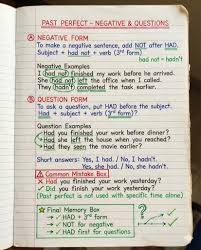 PAST PERFECT – NEGATIVE & QUESTIONS
A NEGATIVE FORM
To make a negative sentence, add NOT after HAD.
Subject + had not + verb (3rd form)
had not = hadn't
Negative Examples
I (had not) finished my work before he arrived.
She (had not) left the office when I called.
They (hadn't) completed the task earlier.
B QUESTION FORM
To ask a question, put HAD before the subject.
Had + subject + verb (3rd form)?
Question Examples
→ Had you finished your work before dinner?
→ Had she left the house when you reached?
→ Had they seen the movie earlier?
Short answers: Yes, I had. / No, I hadn't.
Yes, she had. / No, she hadn't.
Common Mistake Box
✗ Had you finished your work yesterday?
✓ Did you finish your work yesterday?
(Past perfect is not used with specific time alone)
Final Memory Box
→ HAD + 3rd form
→ NOT for negative
→ HAD first for questions